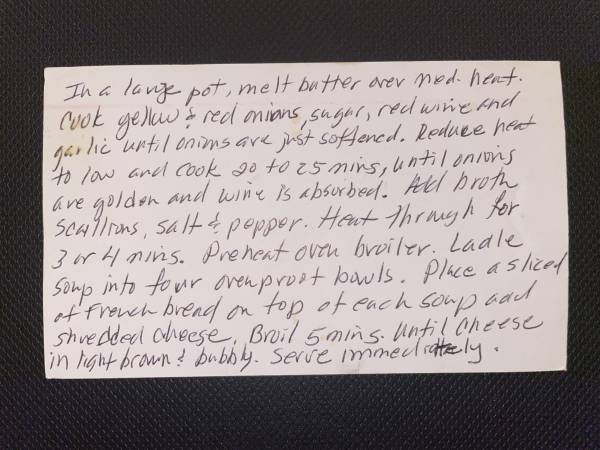 In a large pot, melt butter over med. heat.
Cook yellow & red onions, sugar, red wine and
garlic until onions are just softened. Reduce heat
to low and cook 20 to 25 mins, until onions
are golden and wine is absorbed. Add broth
scallions, salt & pepper. Heat through for
3 or 4 mins. Preheat oven broiler. Ladle
soup into four ovenproof bowls. Place a sliced
of French bread on top of each soup add
shredded cheese. Broil 5 mins. until cheese
in light brown & bubbly. Serve immediately.